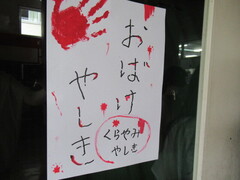 おばけ
やしき
くらやみ
やしき